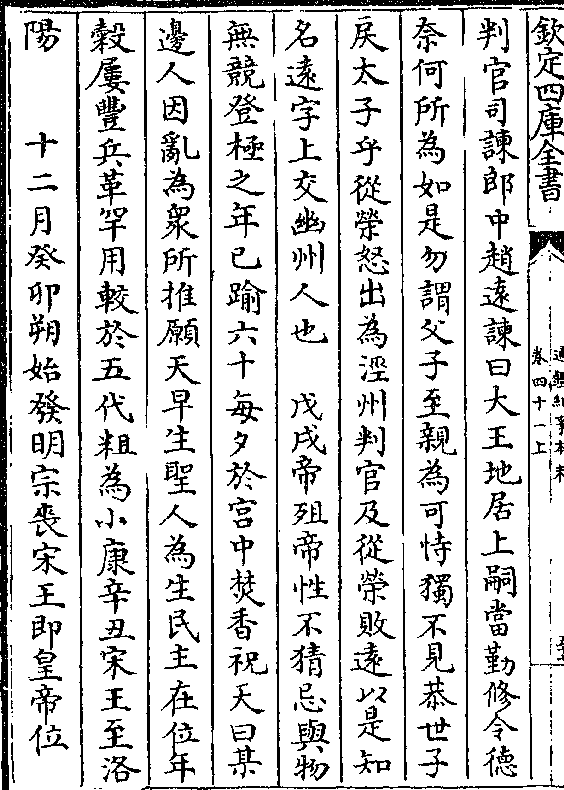 欽定四庫全書
通鑑紀事本末
卷四十一上
判官司諫郎中趙遠諫曰大王地居上嗣當勤修令德
奈何所為如是勿謂父子至親為可恃獨不見恭世子
戾太子乎從榮怒出為涇州判官及從榮敗遠以是知
名遠字上交幽州人也　戊戌帝殂帝性不猜忌與物
無競登極之年已踰六十每夕於宫中焚香祝天曰某
邊人因亂為衆所推願天早生聖人為生民主在位年
穀屢豐兵革罕用較於五代粗為小康辛丑宋王至洛
陽　十二月癸卯朔始發明宗喪宋王即皇帝位